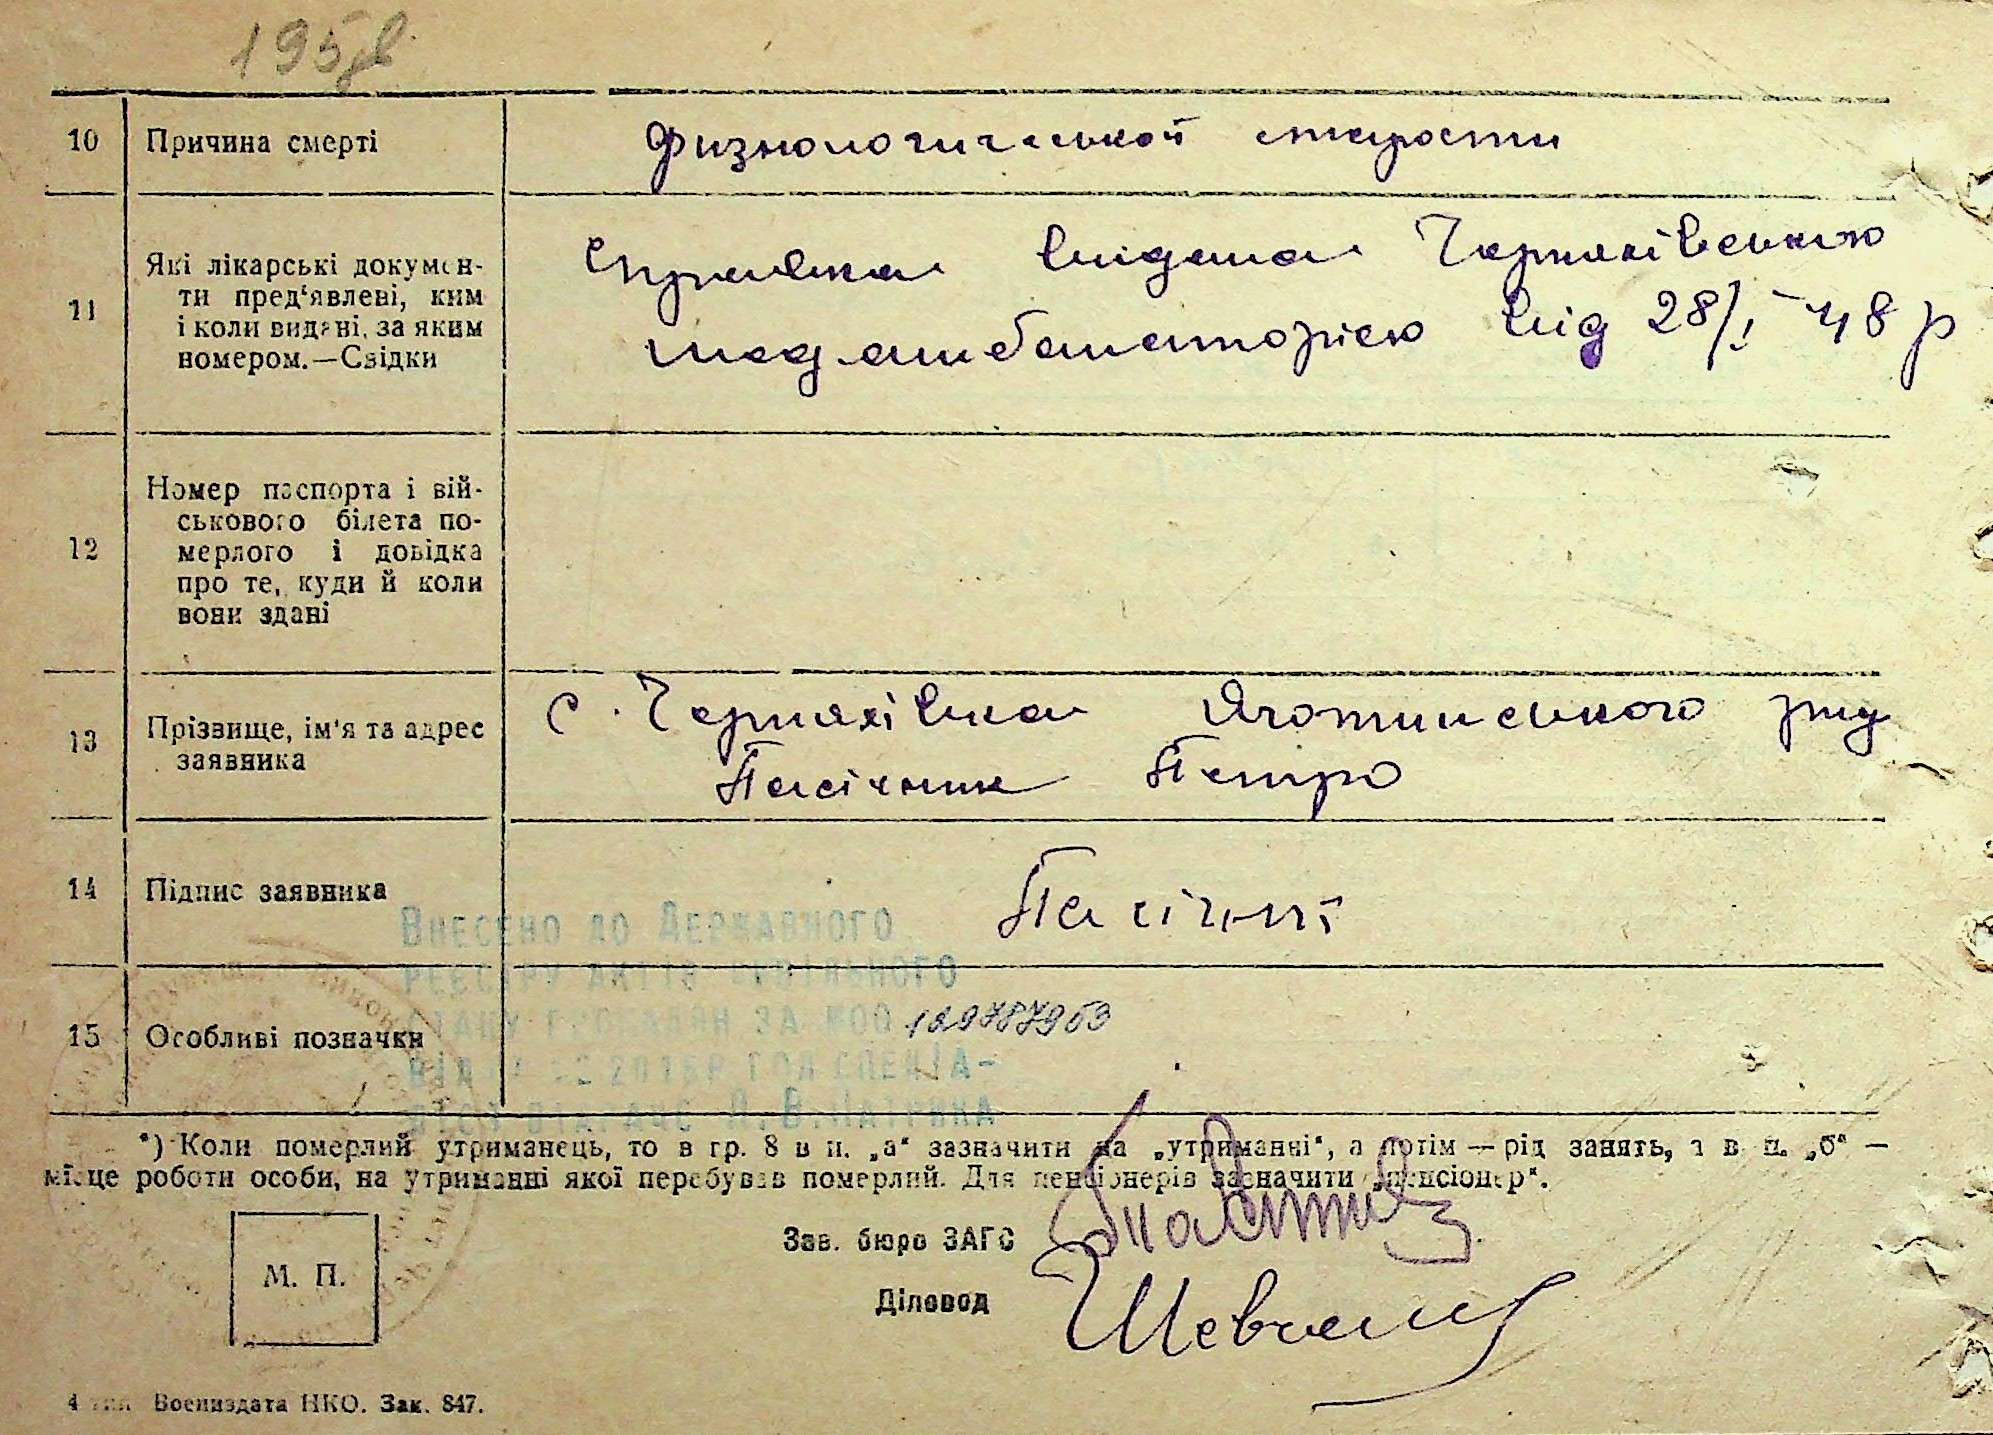 195
10 Причина смерті физиологической старости
11 Які лікарські докумен-
ти пред'явлені, ким
і коли видані, за яким
номером.—Свідки
Справка видана Черняхівською
мед амбаторією від 28/I-48 р
12 Номер паспорта і вій-
ськового білета по-
мерлого і довідка
про те, куди й коли
вони здані
13 Прізвище, ім'я та адрес
заявника
с. Черняхівка Яготинського р-ну
Пасічник Петро
14 Підпис заявника Пасічник
Внесено до Державного
реєстру актів цивільного
стану громадян за №00 129787953
15 Особливі позначки
*) Коли померлий утриманець, то в гр. 8 в п. „а“ зазначити на „утриманні“, а потім — рід занять, а в п. „б“ —
місце роботи особи, на утриманні якої перебував померлий. Для пенсіонерів зазначити „пенсіонер“.
Зав. бюро ЗАГС
М. П.
Діловод Шевченко
4 тип Воениздата НКО. Зак. 847.